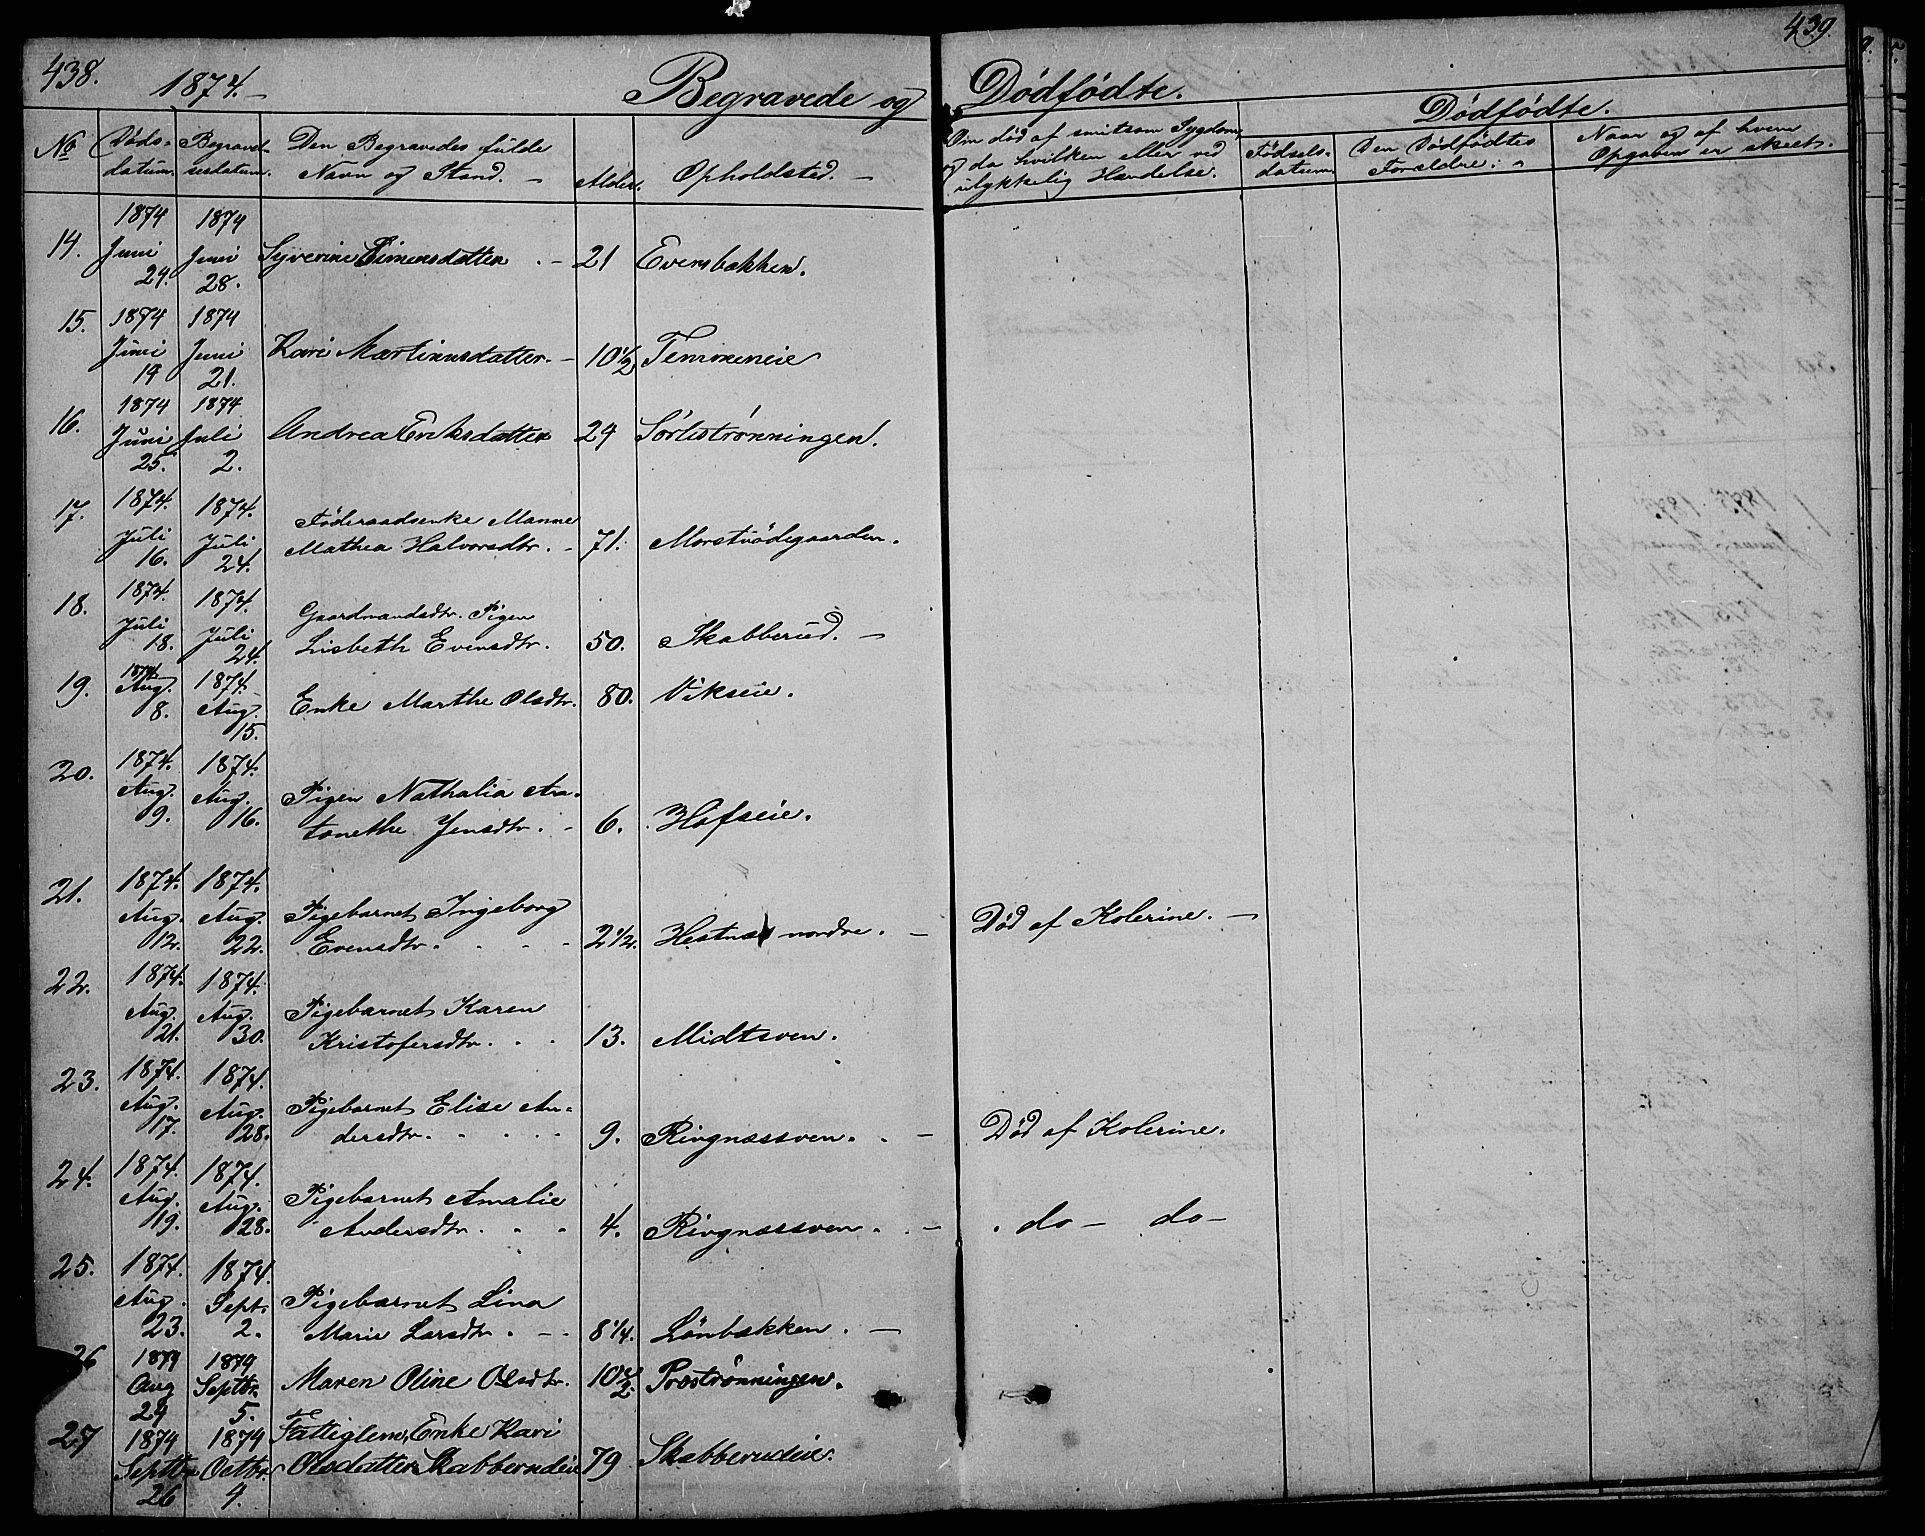 438. 1874. Begravede og Dødfødte. 439.
Dødfødte.
No Døds-datum. Begravel-sesdatum. Den Begravedes fulde Navn og Stand. Alder. Opholdsted. Om død af smitsom Sygdom, og da hvilken eller ved ulykkelig Hændelse. Fødsels-datum. Den Dødfødtes Forældre. Naar og af hvem Opgaven er skeet.
14. 1874 Juni 24. 1874 Juni 28. Syverine Simensdatter 21 Evensbakken.
15. 1874 Juni 19 1874 Juni 21. Kari Martinusdatter. 10 1/2 Femmeneie
16. 1874 Juni 25. 1874 Juli 2. Andrea Eriksdatter 24 Sørlistrønningen.
17. 1874. Juli 16. 1874. Juli 24. Føderaadsenke Manne Mathea Halvorsdtr. 71. Morstuødegaarden.
18. 1874. Juli 18. 1874. Juli 24. Gaardmandsdtr. Pigen Lisbeth Evensdtr. 50. Skabberud.
19. 1874. Aug. 8. 1874. Aug. 15. Enke Marthe Olsdtr. 80. Vikseie.
20. 1874. Aug. 9. 1874. Aug. 16. Pigen Nathalia An-tonethe Jensdtr. 6. Hofseie.
21. 1874. Aug. 12. 1874. Aug. 22. Pigebarnet Ingeborg Evensdtr. 2 1/2. Hestnæs nordre. Død af Kolerine.
22. 1874. Aug. 21. 1874. Aug. 30. Pigebarnet Karen Kristofersdtr. 13. Midtsven.
23. 1874. Aug. 17. 1874. Aug. 28. Pigebarnet Elise An-dersdtr. 9. Ringnæssven. Død af Kolerine.
24. 1874. Aug. 19. 1874. Aug. 28. Pigebarnet Amalie Andersdtr. 4. Ringnæssven. do do
25. 1874. Aug. 23. 1874. Sept. 2. Pigebarnet Lina Marie Larsdtr. 8 1/4. Lønbækken.
26 1874 Aug 24 1874 Septbr. 5. Maren Oline Olsdtr. 10 1/2 Præstrønningen.
27 1874 Septbr 26 1874 Octbr 4. Fattiglem, Enke Kari Olsdatter Skabberudeie 79 Skabberudeie.